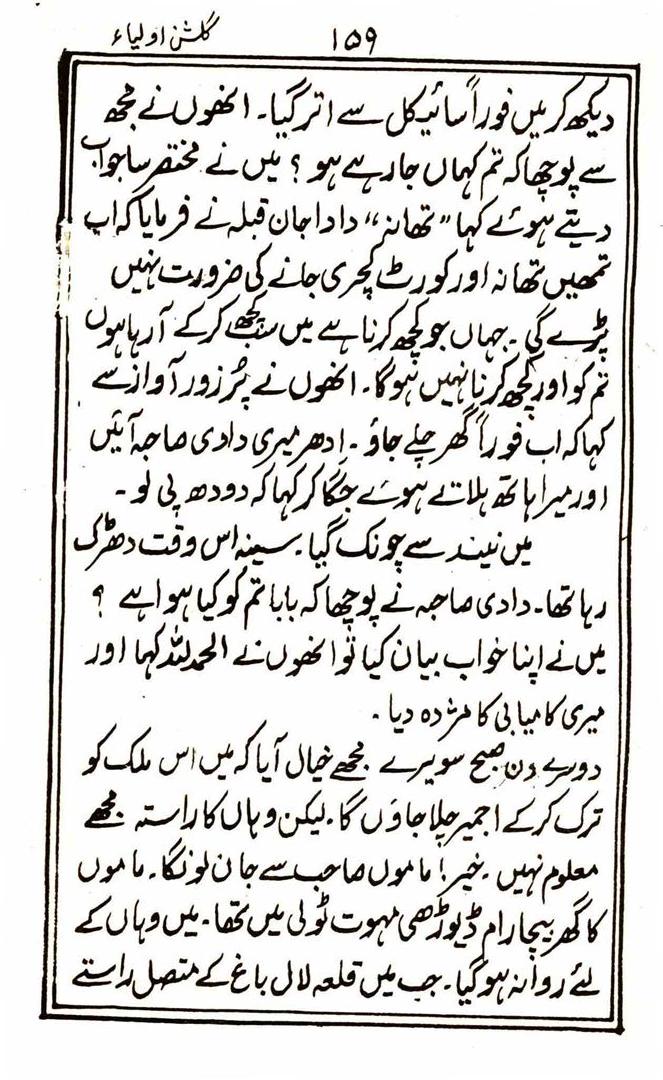 گلشن اولیاء ۱۵۹
دیکھ کر میں فوراً سائیکل سے اتر گیا۔ انھوں نے مجھ
سے پوچھا کہ تم کہاں جا رہے ہو ؟ میں نے مختصر سا جواب
دیتے ہوئے کہا ”تھانہ“ دادا جان قبلہ نے فرمایا کہ اب
تمھیں تھانہ اور کورٹ کچری جانے کی ضرورت نہیں
پڑے گی۔ جہاں جو کچھ کرنا ہے میں سب کچھ کر کے آ رہا ہوں
تم کو اور کچھ کرنا نہیں ہوگا۔ انھوں نے پُر زور آواز سے
کہا کہ اب فوراً گھر چلے جاؤ۔ اِدھر میری دادی صاحبہ آئیں
اور میرا ہاتھ ہلاتے ہوئے جگا کر کہا کہ دودھ پی لو۔
میں نیند سے چونک گیا۔ سینہ اس وقت دھڑک
رہا تھا۔ دادی صاحبہ نے پوچھا کہ بابا تم کو کیا ہوا ہے ؟
میں نے اپنا خواب بیان کیا تو انھوں نے الحمدللہ کہا اور
میری کامیابی کا مژدہ دیا۔
دوسرے دن صبح سویرے مجھے خیال آیا کہ میں اس ملک کو
ترک کر کے اجمیر چلا جاؤں گا۔ لیکن وہاں کا راستہ مجھے
معلوم نہیں۔ خیر! ماموں صاحب سے جان لونگا۔ ماموں
کا گھر بیچارام ڈیوڑھی مہوت ٹولی میں تھا۔ میں وہاں کے
لئے روانہ ہو گیا۔ جب میں قلعہ لال باغ کے متصل راستے